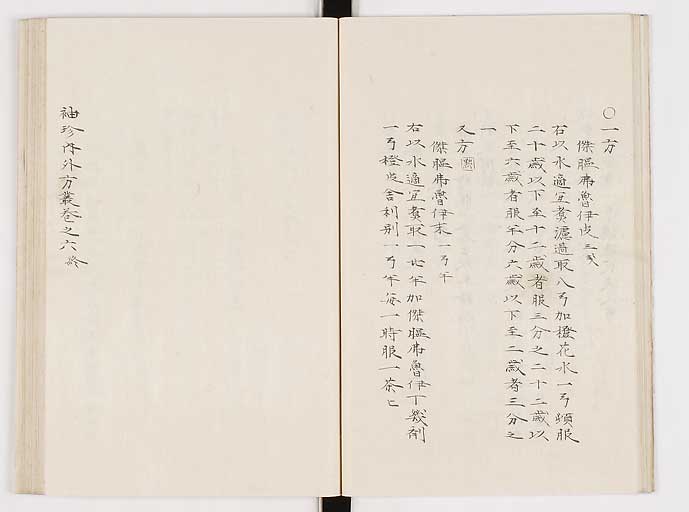 ○一方
傑膃弗魯伊皮 三戔
右以水適宜煑濾過取八弓加橙花水一弓頻服
二十歳以下至十二歳者服三分之二十二歳以
下至六歳者服半分六歳以下至二歳者三分之
一
又方
傑膃弗魯伊末 一弓半
右以水適宜煑取一七半加傑膃弗魯伊丁幾剤
一弓橙皮舎利別一弓半毎一時服一茶匕
袖珍内外方叢巻之六終